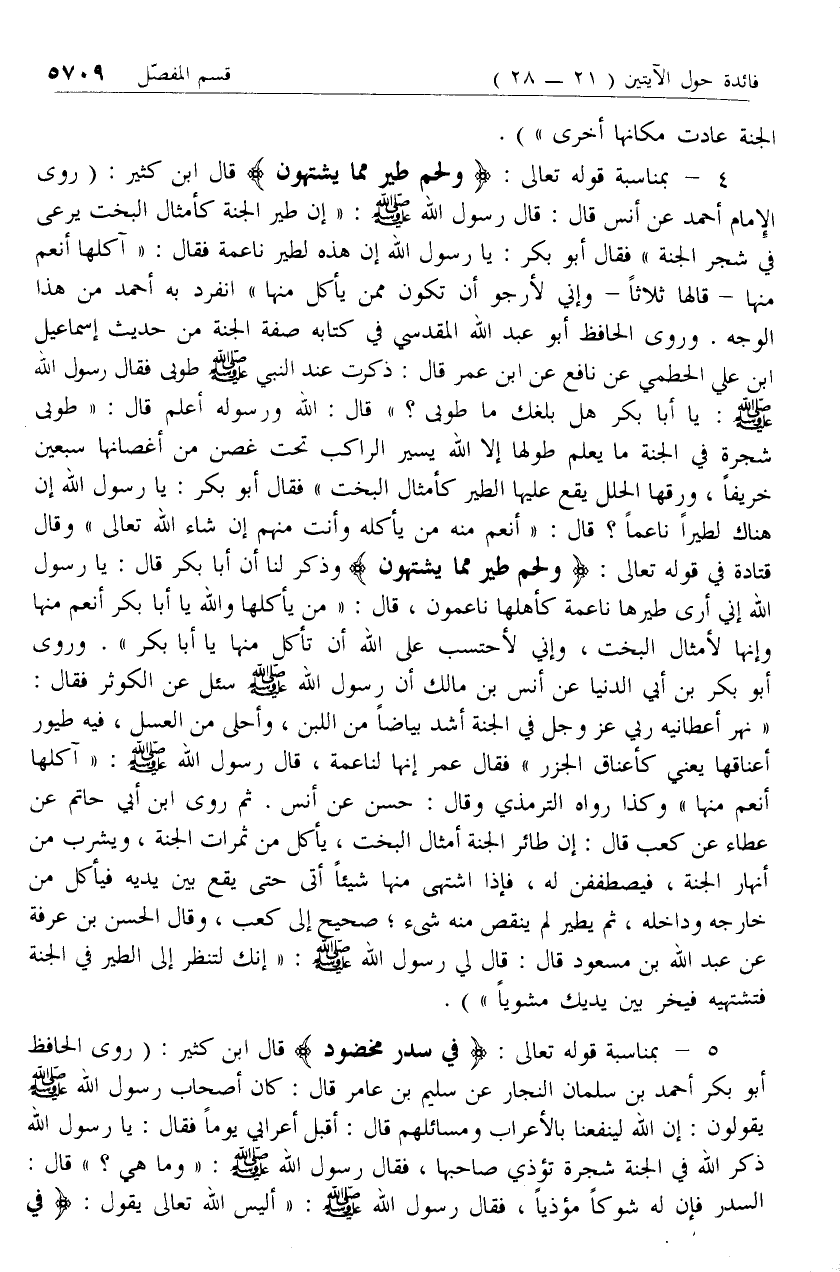 فائدة حول الآيتين ( ٢١ — ٢٨ ) قسم المفصّل ٥٧٠٩
الجنة عادت مكانها أخرى » ) .
٤ - بمناسبة قوله تعالى : ﴿ ولحم طير مما يشتهون ﴾ قال ابن كثير : ( روى
الإمام أحمد عن أنس قال : قال رسول الله ﷺ : « إن طير الجنة كأمثال البخت يرعى
في شجر الجنة » فقال أبو بكر : يا رسول الله إن هذه لطير ناعمة فقال : « آكلها أنعم
منها – قالها ثلاثاً – وإني لأرجو أن تكون ممن يأكل منها » انفرد به أحمد من هذا
الوجه . وروى الحافظ أبو عبد الله المقدسي في كتابه صفة الجنة من حديث إسماعيل
ابن علي الخطمي عن نافع عن ابن عمر قال : ذكرت عند النبي ﷺ طوبى فقال رسول الله
ﷺ : يا أبا بكر هل بلغك ما طوبى ؟ » قال : الله ورسوله أعلم قال : « طوبى
شجرة في الجنة ما يعلم طولها إلا الله يسير الراكب تحت غصن من أغصانها سبعين
خريفاً ، ورقها الحلل يقع عليها الطير كأمثال البخت » فقال أبو بكر : يا رسول الله إن
هناك لطيراً ناعماً ؟ قال : « أنعم منه من يأكله وأنت منهم إن شاء الله تعالى » وقال
قتادة في قوله تعالى : ﴿ ولحم طير مما يشتهون ﴾ وذكر لنا أن أبا بكر قال : يا رسول
الله إني أرى طيرها ناعمة كأهلها ناعمون ، قال : « من يأكلها والله يا أبا بكر أنعم منها
وإنها لأمثال البخت ، وإني لأحتسب على الله أن تأكل منها يا أبا بكر » . وروى
أبو بكر بن أبي الدنيا عن أنس بن مالك أن رسول الله ﷺ سئل عن الكوثر فقال :
« نهر أعطانيه ربي عز وجل في الجنة أشد بياضاً من اللبن ، وأحلى من العسل ، فيه طيور
أعناقها يعني كأعناق الجزر » فقال عمر إنها لناعمة ، قال رسول الله ﷺ : « آكلها
أنعم منها » وكذا رواه الترمذي وقال : حسن عن أنس . ثم روى ابن أبي حاتم عن
عطاء عن كعب قال : إن طائر الجنة أمثال البخت ، يأكل من ثمرات الجنة ، ويشرب من
أنهار الجنة ، فيصطففن له ، فإذا اشتهى منها شيئاً أتى حتى يقع بين يديه فيأكل من
خارجه وداخله ، ثم يطير لم ينقص منه شيء ؛ صحيح إلى كعب ، وقال الحسن بن عرفة
عن عبد الله بن مسعود قال : قال لي رسول الله ﷺ : « إنك لتنظر إلى الطير في الجنة
فتشتهيه فيخر بين يديك مشوياً » ) .
٥ – بمناسبة قوله تعالى : ﴿ في سدر مخضود ﴾ قال ابن كثير : ( روى الحافظ
أبو بكر أحمد بن سلمان النجار عن سليم بن عامر قال : كان أصحاب رسول الله ﷺ
يقولون : إن الله لينفعنا بالأعراب ومسائلهم قال : أقبل أعرابي يوماً فقال : يا رسول الله
ذكر الله في الجنة شجرة تؤذي صاحبها ، فقال رسول الله ﷺ : « وما هي ؟ » قال :
السدر فإن له شوكاً مؤذياً ، فقال رسول الله ﷺ : « أليس الله تعالى يقول : ﴿ في